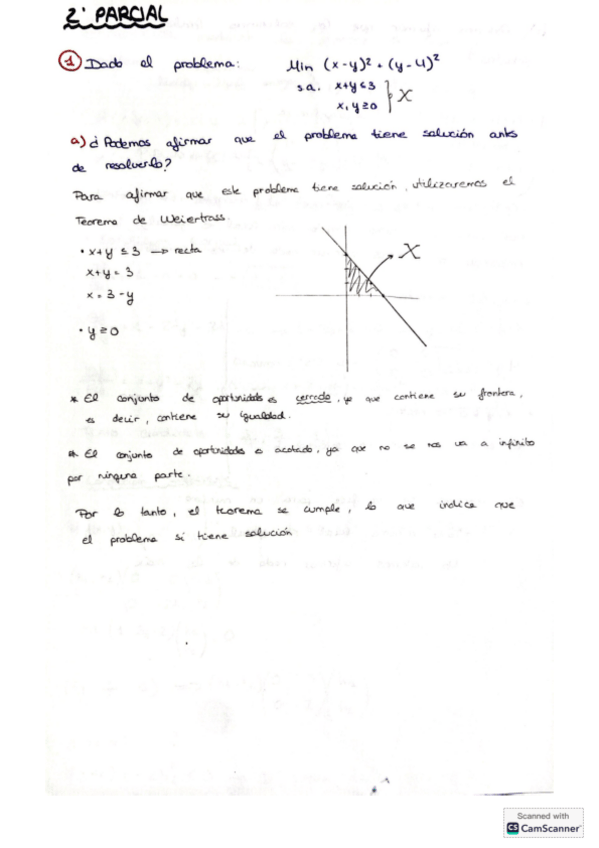 2º PARCIAL
1 Dado el problema: Min (x-y)² + (y-4)²
s.a. x+y≤3
x, y≥0 } X
a) ¿Podemos afirmar que el problema tiene solución antes
de resolverlo?
Para afirmar que este problema tiene solución, utilizaremos el
Teorema de Weiertrass.
• x+y ≤ 3 → recta
x+y = 3
x = 3-y
• y≥0
X
* El conjunto de oportunidades es cerrado, ya que contiene su frontera,
es decir, contiene su igualdad.
* El conjunto de oportunidades es acotado, ya que no se nos va a infinito
por ninguna parte.
Por lo tanto, el teorema se cumple, lo que indica que
el problema si tiene solución
Scanned with
CS CamScanner